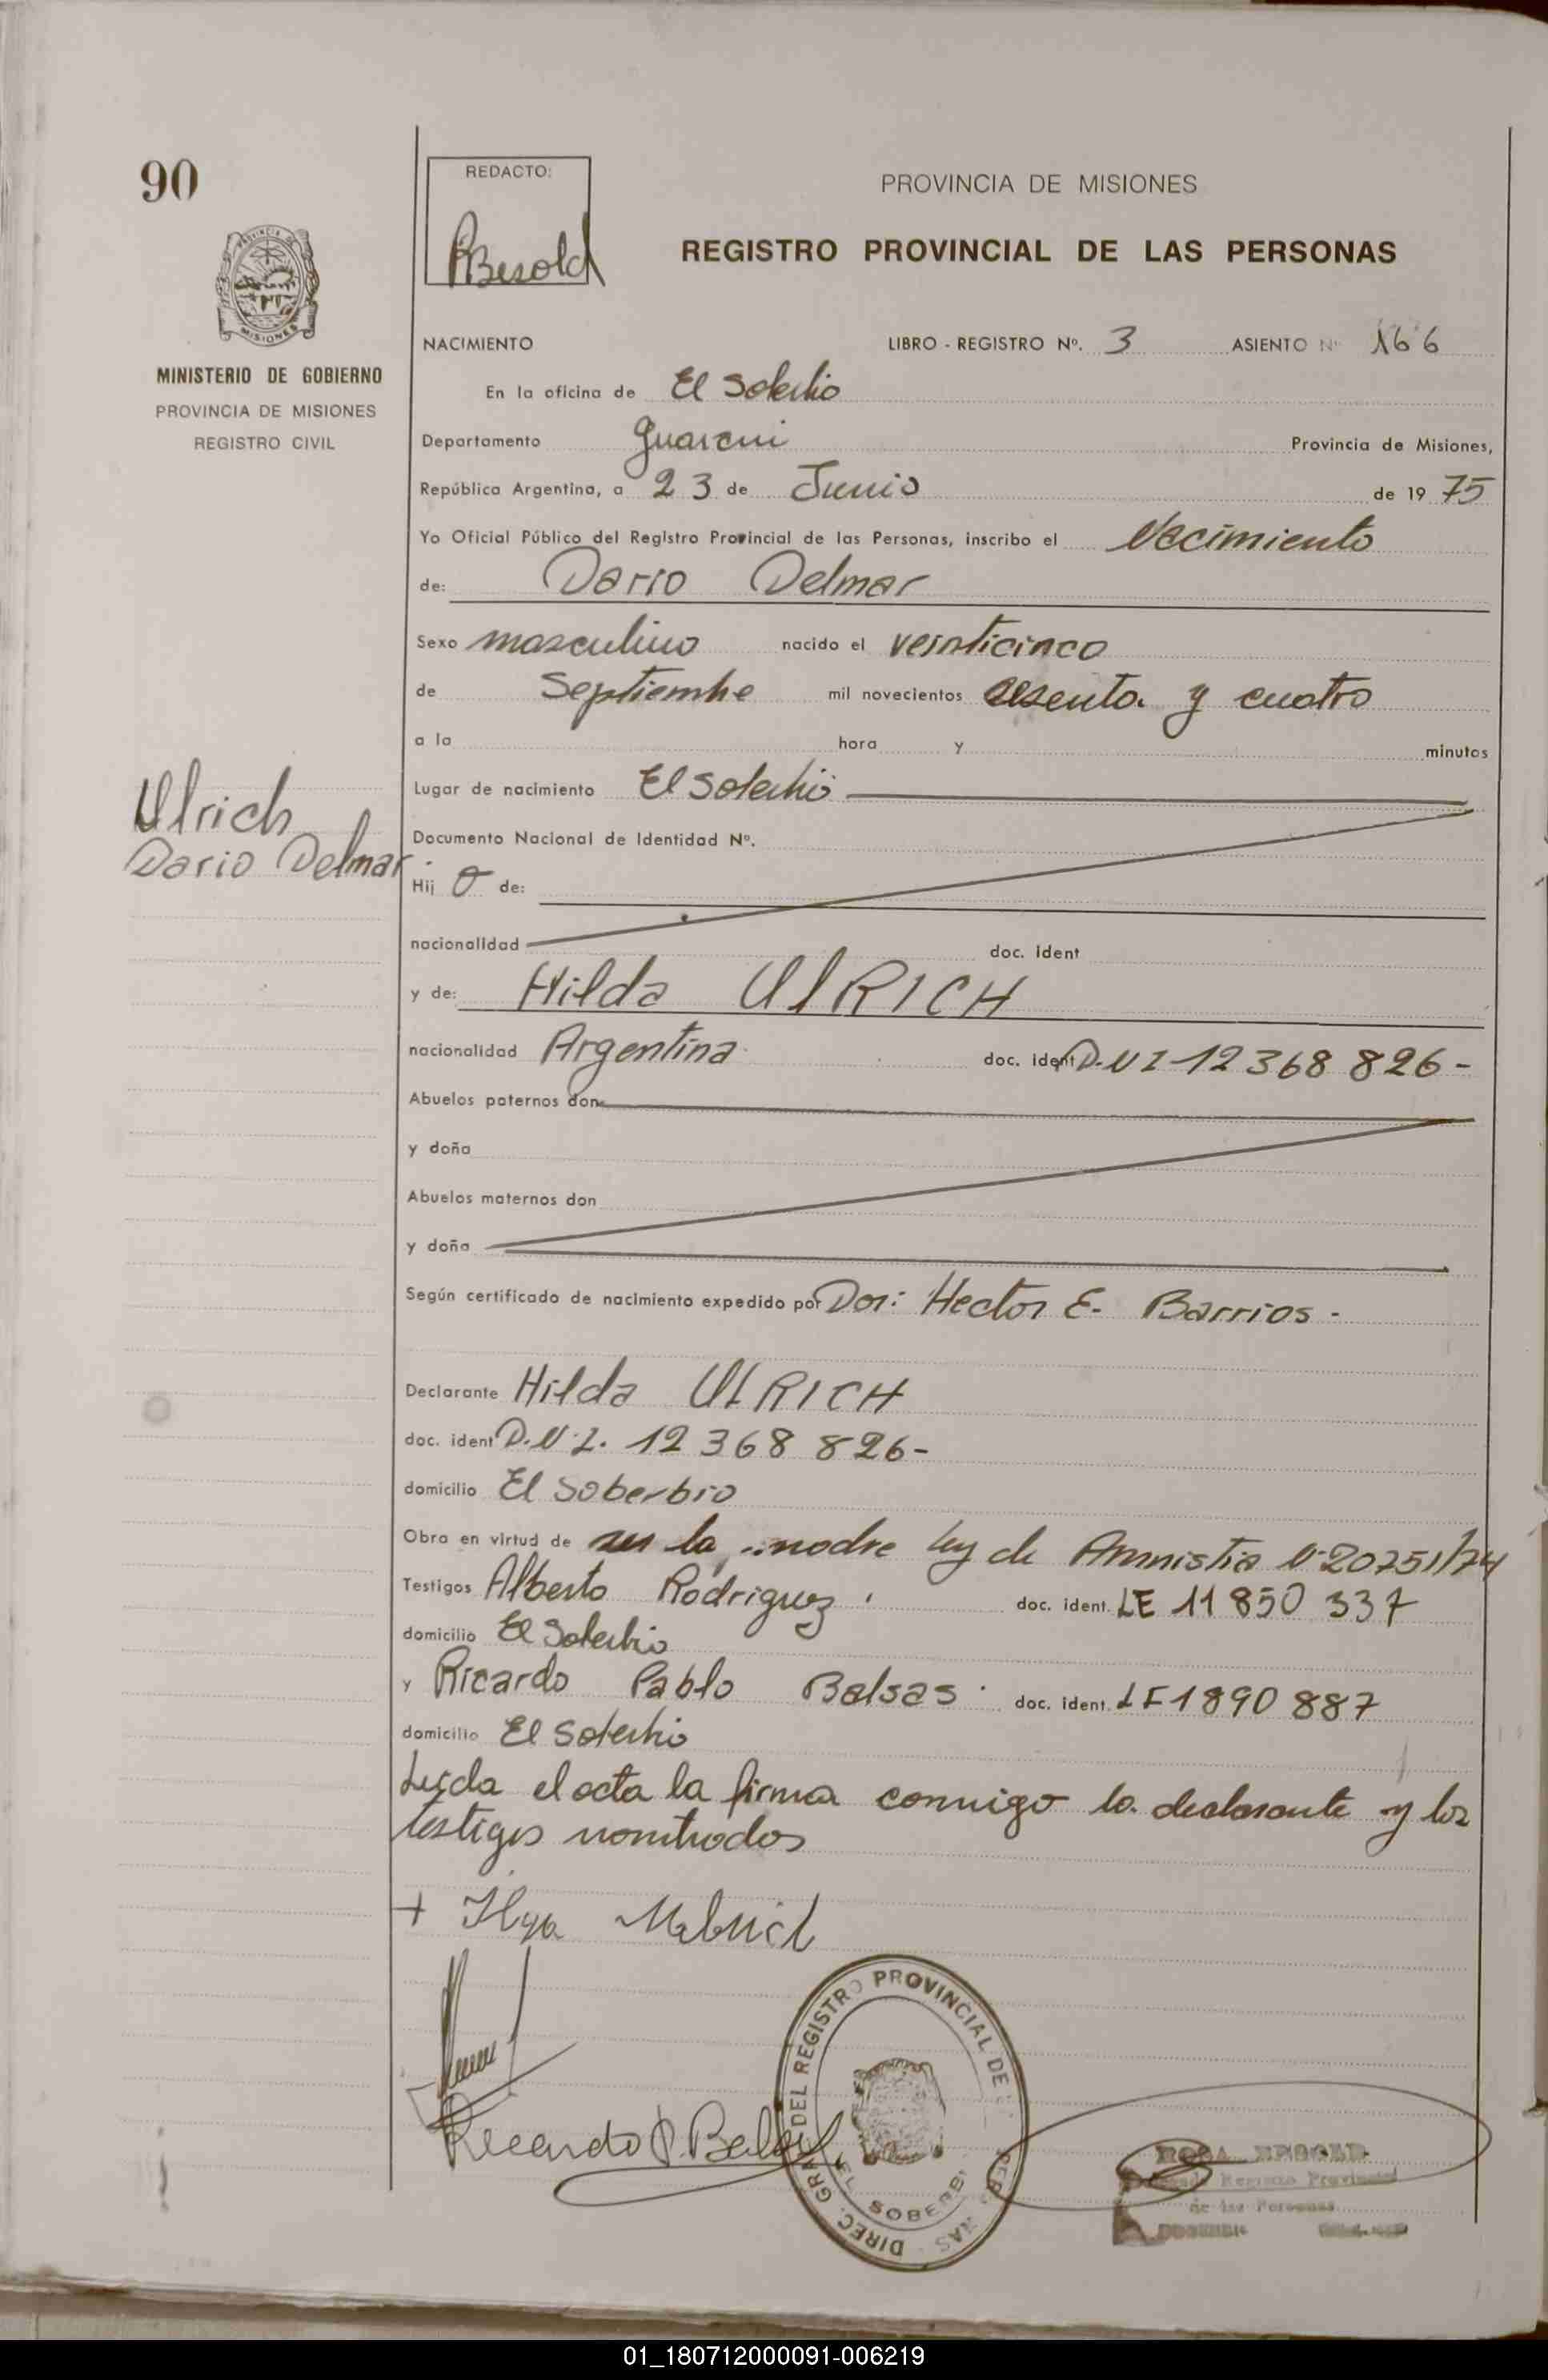 90
REDACTO:
PBesold
PROVINCIA DE MISIONES
REGISTRO PROVINCIAL DE LAS PERSONAS
MISIONES
MINISTERIO DE GOBIERNO
PROVINCIA DE MISIONES
REGISTRO CIVIL
NACIMIENTO LIBRO - REGISTRO Nº. 3 ASIENTO Nº 166
En la oficina de El Soberbio
Departamento Guarani Provincia de Misiones,
República Argentina, a 23 de Junio de 19 75
Yo Oficial Público del Registro Provincial de las Personas, inscribo el Nacimiento
de: Dario Delmar
Sexo masculino nacido el veinticinco
de Septiembre mil novecientos sesenta y cuatro
a la hora y minutos
Lugar de nacimiento El Soberbio
Ulrich
Dario Delmar
Documento Nacional de Identidad Nº.
Hij o de:
nacionalidad doc. ident
y de: Hilda UlRICH
nacionalidad Argentina doc. ident D.N I 12 368 826-
Abuelos paternos don
y doña
Abuelos maternos don
y doña
Según certificado de nacimiento expedido por Dor: Hector E. Barrios -
Declarante Hilda UlRICH
doc. ident D.N.I. 12 368 826-
domicilio El Soberbio
Obra en virtud de ser la madre ley de Amnistia Nº 20751/74
Testigos Alberto Rodriguez doc. ident. LE 11 850 337
domicilio El Soberbio
y Ricardo Pablo Balsas doc. ident. LE 1890 887
domicilio El Soberbio
Leida el acta la firma conmigo la declarante y los
testigos nombrados
+
Ricardo P. Balsas
DIREC. GRAL DEL REGISTRO PROVINCIAL DE
EL SOBERBIO
Registro Provincial
de las Personas
01_180712000091-006219